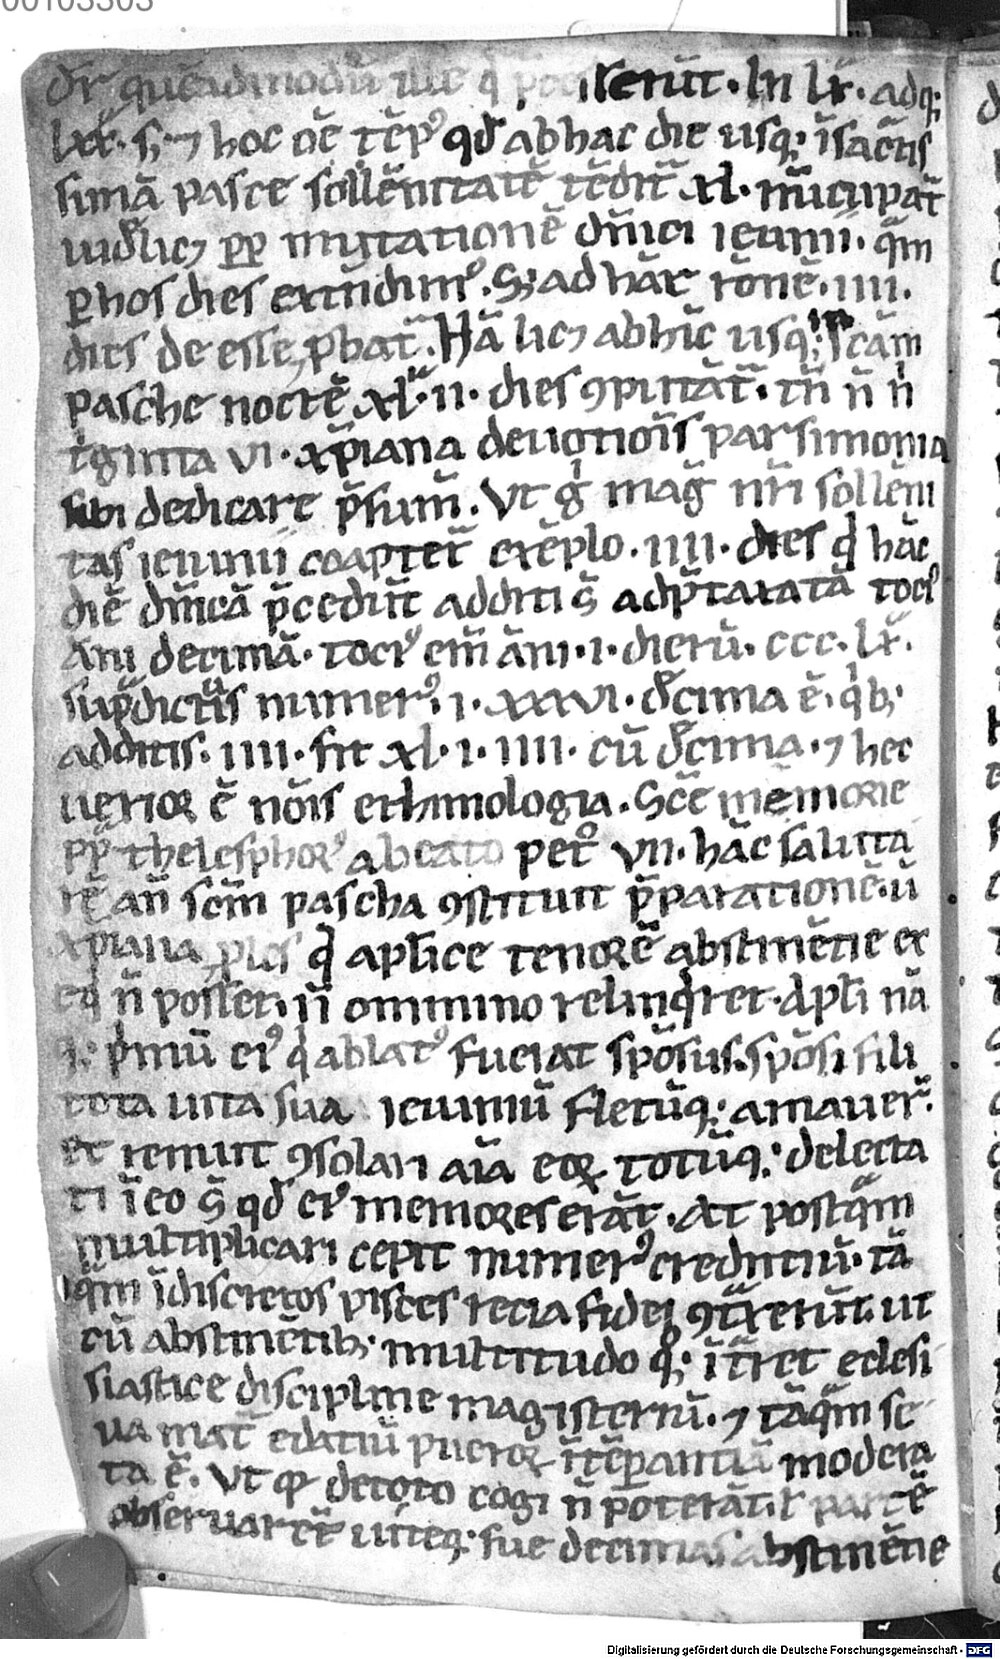 00103303
dr̄ quēadmodū ille q̇ p̄cesserūt. In lx̄. adq;
lxx. s; ⁊ hoc oē tēpꝰ qd̄ ab hac die usq; ī sacītis
simā pasce sollēnitatē tēdit̄ .xl. nūcupat̄
uidlicꝫ pp̄ imitationē dn̄ici ieiunii. q̄m
ꝑ hos dies extēdimꝰ. S; ad hāc rōnē .iiii.
dies de esse ꝓbat̄. Nā licꝫ ab hīc usq; in sc̄am
pasche noctē .xl.ii. dies ꝯputāt̄. tn̄ n̄ n̄
tͥginta vi. xp̄iana deuotiōīs parsimonia
sibi dedicare p̄sum̄. Vt gͦ maḡ nr̄i sollēni
tas ieiunii coaptet̄ exēplo. iiii. dies q̇ hāc
diē dn̄icā p̄cedūt additi s̄ ad p̄taxatā tociꝰ
āni decimā. tociꝰ em̄ āni .i. dierū. ccc. lx̄.
sup̄dictīs numerꝰ .i. xxxvi. decima ē. q̇b;
additis. iiii. fit xl. i. iiii. cū decima. ⁊ hec
uerior ē nōīs ethimologia. Sc̄e memorie
pp̄ thelesphorꝰ a beato petͦ vii. hāc saluta
rē an̄ sc̄m pascha ꝯstituit p̄parationē. ū
xp̄iana ples q̇ aplīce tenorē abstinētie ex
eq̇ n̄ posset, n̄ omnino relinq̇ret. Apl̄i nā
q; p̄mū eiꝰ q̇ ablatꝰ fuerat spōsus. spōsi filii
tota uita sua ieiuniū fletūq; amauer̄.
et renuit ꝯsolari aīa eoꝝ totūq; delecta
ti ī eo s̄ qd̄ eiꝰ memores erāt. At postq̄m
multiplicari cepit numerꝰ credentiū. tā
q̄m īdiscretos pisces recia fidei ꝯtͣxerūt. ut
cū abstinētib; multitudo q̄; īt̄ret eclesi
siastice discipline magisteriū. ⁊ tāq̄m se
ua mat̄ edatiū pueroꝝ ītēperantiā modera
ta ē. Vt qͥ detoto cogi n̄ poterāt. ł partē
obseruarēt uiteq; sue decimas abstinētie
Digitalisierung gefördert durch die Deutsche Forschungsgemeinschaft - DFG